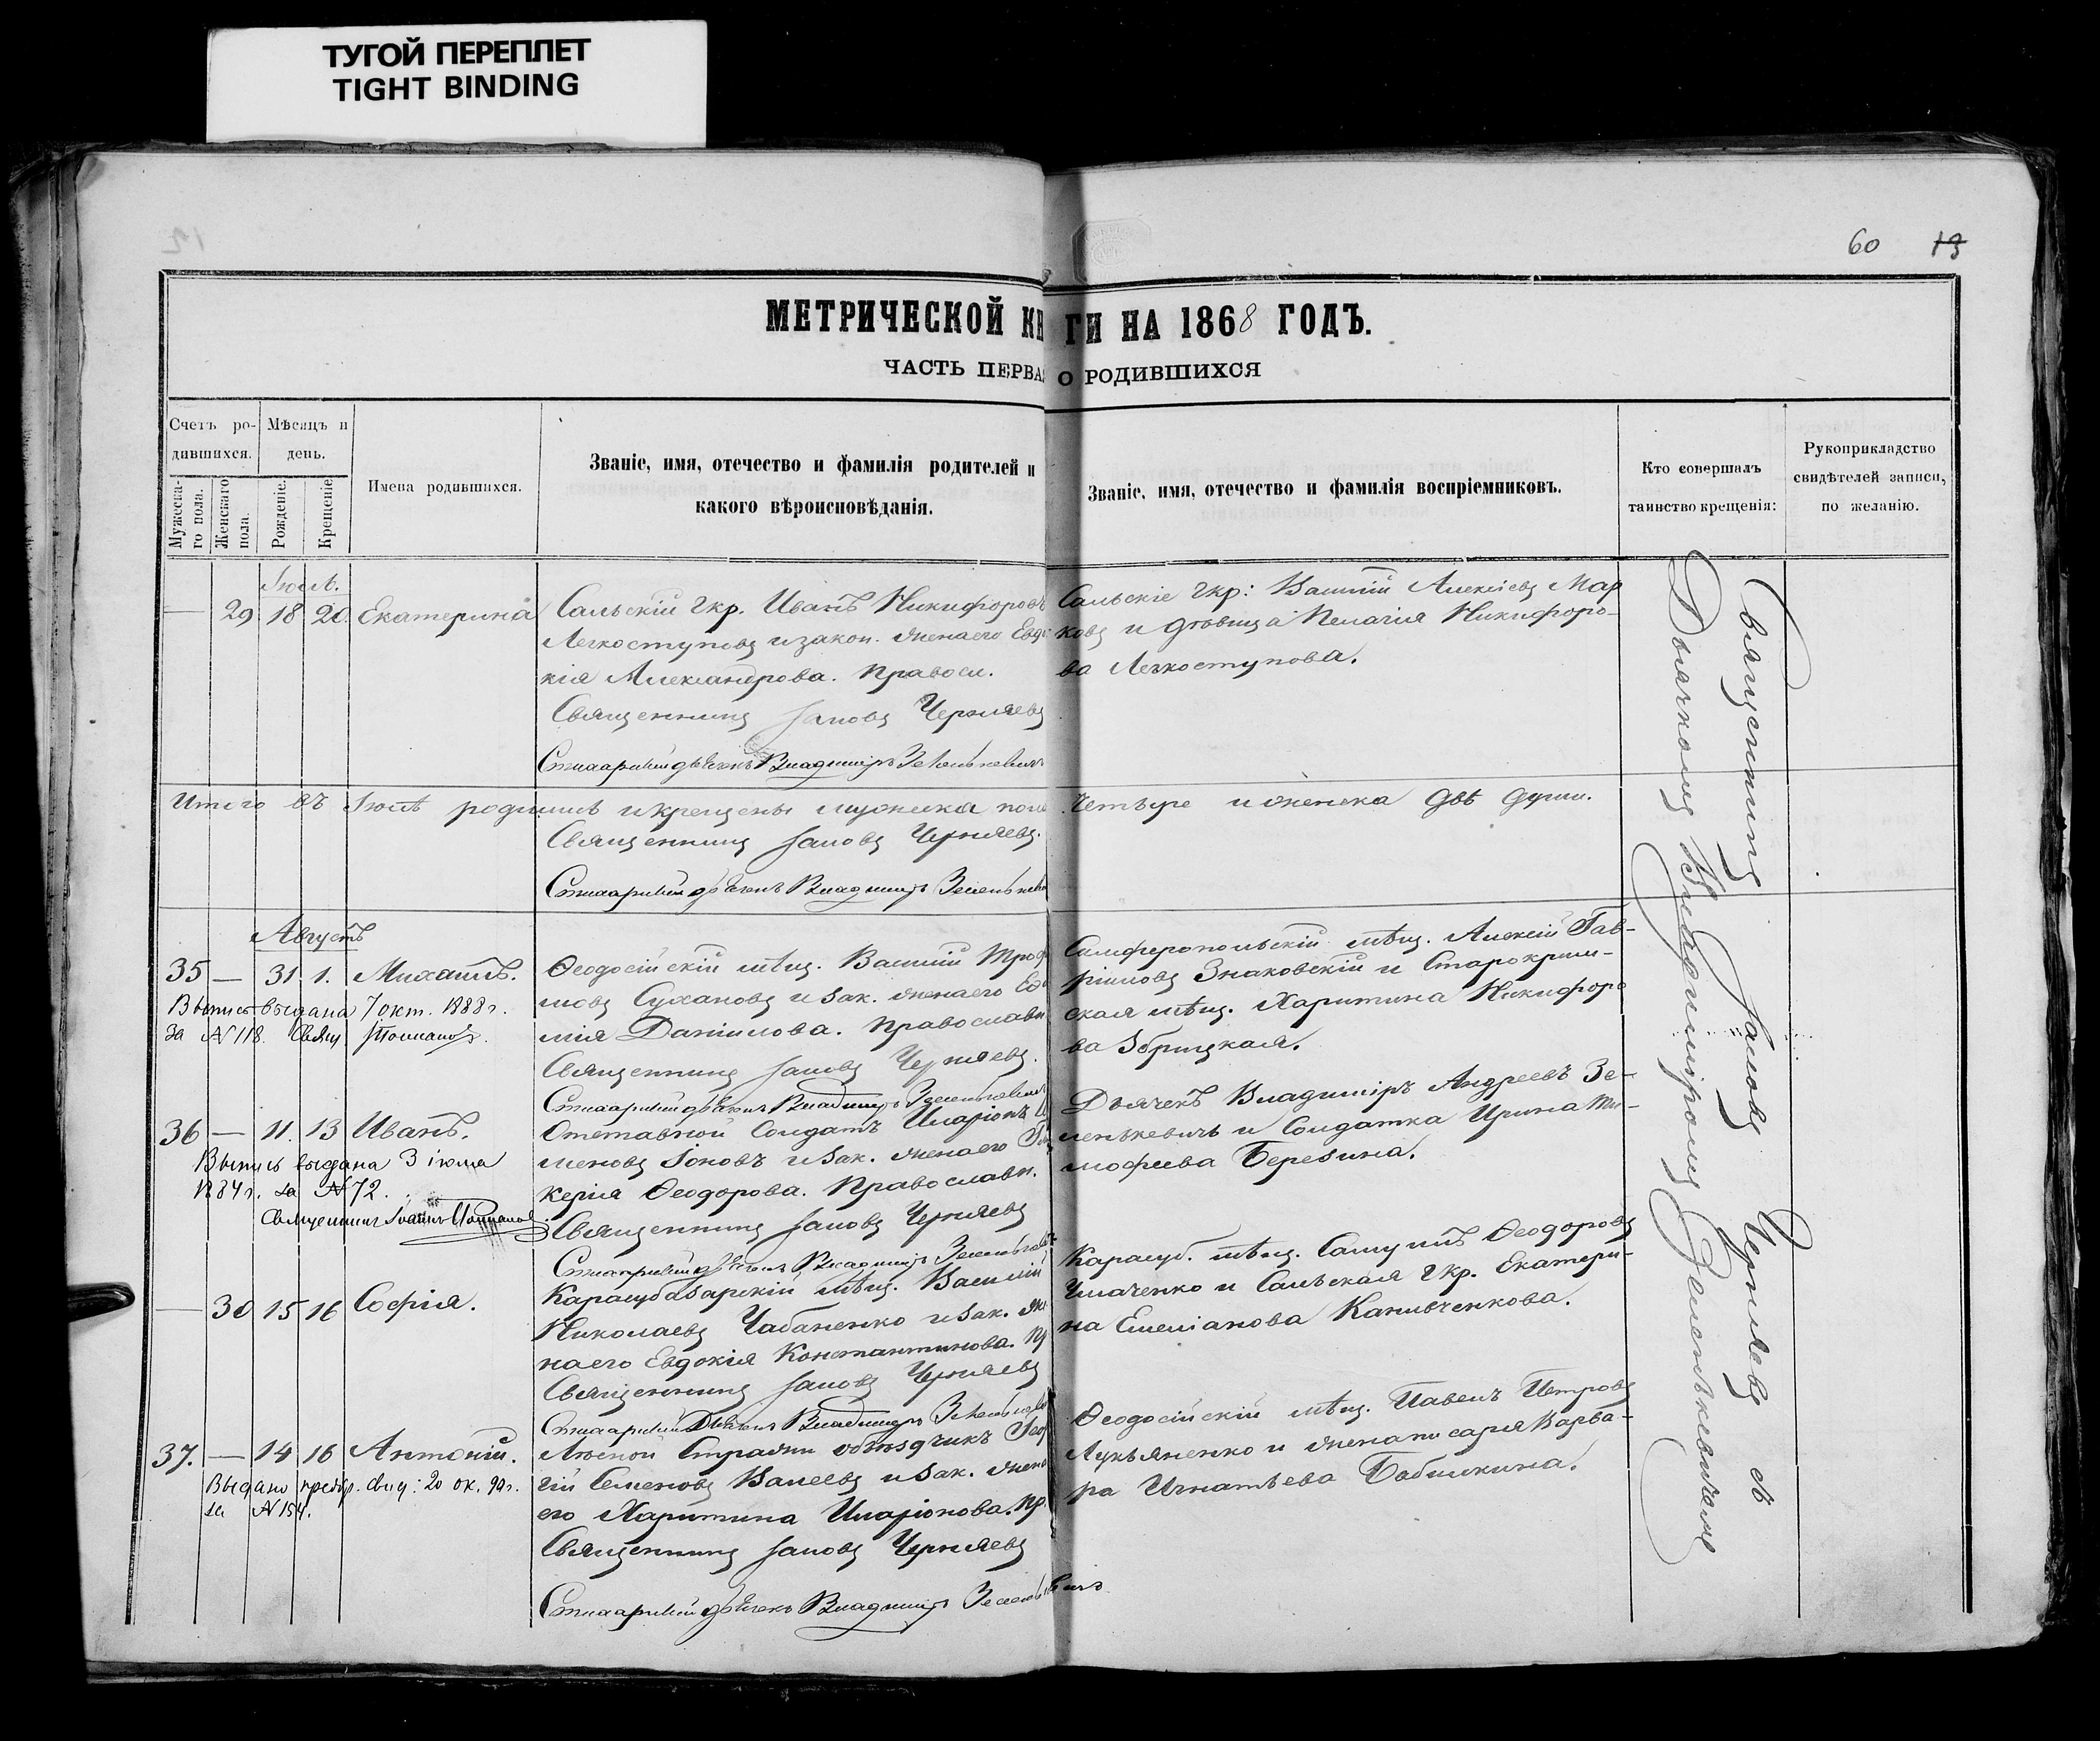 ТУГОЙ ПЕРЕПЛЕТ
TIGHT BINDING
60 13
МЕТРИЧЕСКОЙ КН ГИ НА 1868 ГОДЪ.
ЧАСТЬ ПЕРВА О РОДИВШИХСЯ
Счетъ ро-
дившихся.
Мужеска-
го пола.
Женскаго
пола.
Мѣсяцъ и
день.
Рожденіе.
Крещеніе.
Имена родившихся.
Званіе, имя, отечество и фамилія родителей и
какого вѣроисповѣданія.
Званіе, имя, отечество и фамилія воспріемниковъ.
Кто совершалъ
таинство крещенія:
Рукоприкладство
свидѣтелей записи,
по желанію.
Іюль.
— 29 18 20 Екатерина
Сальскій гкр. Иванъ Никифоровъ
Легкоступовъ и закон. жена его Евдо
кія Александрова. Правосл.
Священникъ Іаковъ Черняевъ
Стихарный дьячекъ Владиміръ Зеленькевичъ
Сальскіе гкр: Василій Алексіевъ Мар
ковъ и дѣвица Пелагія Никифоро-
ва Легкоступова.
Итого въ Іюлѣ родились и крещены мужеска пола
Четыре и женска двѣ души.
Священникъ Іаковъ Черняевъ.
Стихарный дьячекъ Владиміръ Зеленькев
Августъ
35 — 31 1. Михаилъ.
Выпись выдана 7 окт. 1888 г.
за № 118. Свящ.
Ѳеодосійскій мѣщ. Василій Троф
мовъ Сухановъ и зак. жена его Ев
мія Даніилова. Православн
Священникъ Іаковъ Черняевъ.
Стихарный дьячекъ Владиміръ Зеленькевичъ
Симферопольскій мѣщ. Алексій Гав-
ріиловъ Знаковскій и Старокрым-
ская мѣщ. Харитина Никифоро
ва Збрицкая.
36 — 11. 13 Иванъ.
Выпись выдана 3 іюля
1884 г. за № 72.
Священникъ Іоаннъ
Отставной Солдатъ Иларіонъ
меновъ Іоновъ и зак. жена его Гли
керія Ѳеодорова. Православн.
Священникъ Іаковъ Черняевъ
Стихарный дьячекъ Владиміръ Зеленькевичъ
Дьячекъ Владиміръ Андреевъ Зе-
ленькевичъ и Солдатка Ирина Ти-
мофеева Березина.
— 30 15 16 Софія.
Карасубазарскій мѣщ. Василій
Николаевъ Чабаненко и зак. же
на его Евдокія Константинова. Пр
Священникъ Іаковъ Черняевъ
Стихарный Дьячекъ Владиміръ Зеленькев
Карасуб. мѣщ. Самуилъ Ѳеодоровъ
Чмаченко и Сальская гкр. Екатери-
на Емеліанова Канивченкова.
37. — 14 16 Антоній.
Выдано предбр. свид: 20 ок. 90 г.
за № 154.
Лѣсной Стражи объѣздчикъ Геор
гій Семеновъ Валеевъ и зак. жена
его Харитина Иларіонова. Пр.
Священникъ Іаковъ Черняевъ
Стихарный дьячекъ Владиміръ Зеленькевичъ
Ѳеодосійскій мѣщ. Павелъ Петровъ
Лукьяненко и жена писаря Варва-
ра Игнатьева Бабишкина.
Священникъ Іаковъ Черняевъ съ
Дьячкомъ Владиміромъ Зеленькевичемъ